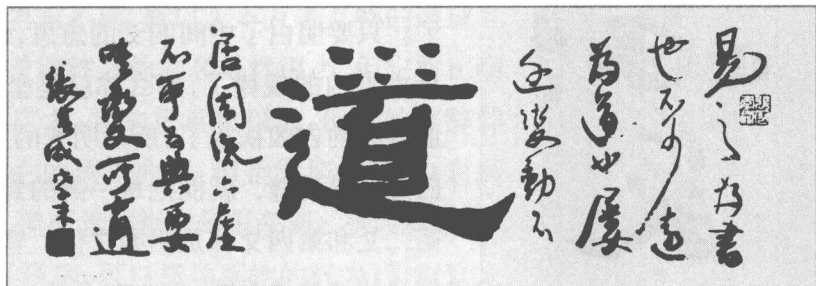 易之为書
也不可遠
為道也屢
迁變動不
道
居周流六虛
不可为典要
唯變所適
張